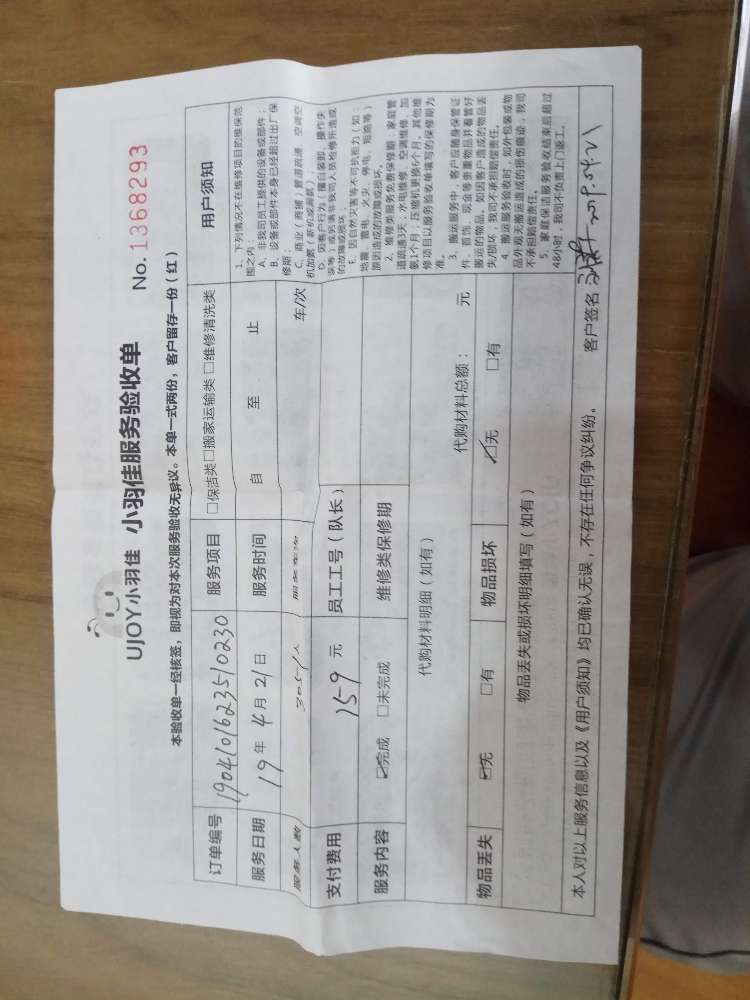 UJOY小羽佳 小羽佳服务验收单 No.1368293
本验收单一经核签，即视为对本次服务验收无异议。本单一式两份，客户留存一份（红）
订单编号 190410162351023O 服务项目 □保洁类□搬家运输类 □维修清洗类
服务日期 19年4月21日 服务时间 自 至 止
服务人数 人 服务车次 车/次
支付费用 159 元 员工工号（队长）
服务内容 ☑完成 □未完成 维修类保修期
代购材料明细（如有） 代购材料总额： 元
物品丢失 ☑无 □有 物品损坏 ☑无 □有
物品丢失或损坏明细填写（如有）
用户须知
1、下列情况不在维修项目的维保范
围之内：
A、非我司员工提供的设备或部件；
B、设备或部件本身已经超过出厂保
修期；
C、商业（商铺）管道疏通、空调空
机加氟（新机或漏氟）；
D、因客户行为（擅自装卸、操作失
误等）或另请非我司人员检修所造成
的故障或损坏；
E、因自然灾害等不可抗拒力（如：
地震、雷电、火灾、停电、短路等）
原因造成的故障或损坏。
2、维修类服务免费保修期：家庭管
道疏通3天，水电维修、空调维修、加
氨1个月；压缩机更换6个月，其他维
修项目以服务验收单填写的保修期为
准。
3、搬运服务中，客户应随身保管证
件、首饰、现金等贵重物品并看管好
搬运的物品，如因客户造成的物品丢
失/损坏，我司不承担赔偿责任。
4、搬运服务验收时，如外包装或物
品外观无搬运造成的损伤痕迹，我司
不承担赔偿责任。
5、家庭保洁服务验收结束后超过
48小时，我司不负责上门返工。
本人对以上服务信息以及《用户须知》均已确认无误，不存在任何争议纠纷。 客户签名 2019.04.21